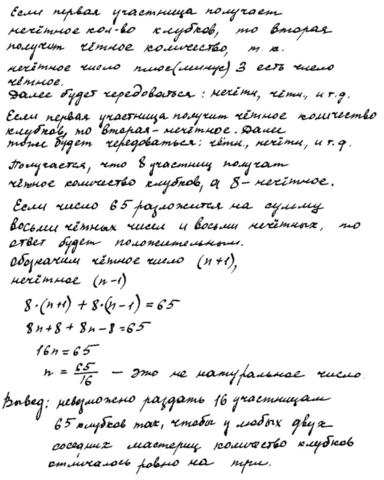 Если первая участница получает
нечётное кол-во клубков, то вторая
получит чётное количество, т.к.
нечётное число плюс(минус) 3 есть число
чётное.
Далее будет чередоваться: нечётн, чётн, и т.д.
Если первая участница получит чётное количество
клубков, то вторая - нечётное. Далее
тоже будет чередоваться: чётн, нечётн, и т.д.
Получается, что 8 участниц получат
чётное количество клубков, а 8 - нечётное.
Если число 65 разложится на сумму
восьми чётных чисел и восьми нечётных, то
ответ будет положительным.
Обозначим чётное число (n+1),
нечётное (n-1)
8·(n+1) + 8·(n-1) = 65
8n+8+8n-8=65
16n=65
n = 65/16 - это не натуральное число.
Вывод: невозможно раздать 16 участницам
65 клубков так, чтобы у любых двух
соседних мастериц количество клубков
отличалось ровно на три.